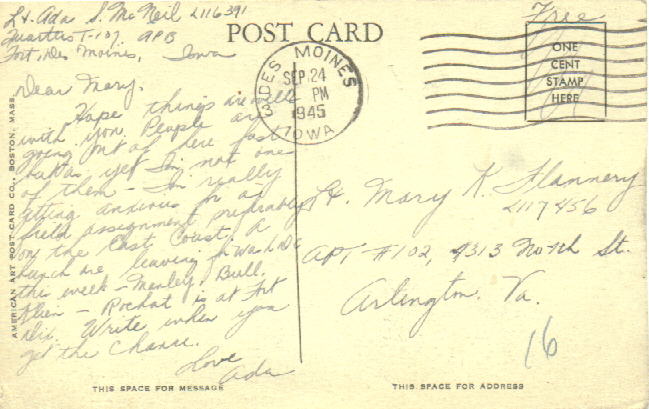 Lt. Ada S. McNeil L116391
Quarters T-107, APB
Fort Des Moines, Iowa
POST CARD
Free
ONE
CENT
STAMP
HERE
DES MOINES
SEP 24
3 PM
1945
IOWA
Dear Mary,
Hope things are well
with you. People are
going out of here fast
but as yet I'm not one
of them - I'm really
getting anxious for a
field assignment preferably
on the East Coast, A
bunch are leaving for Wash DC
this week - Manley, Bull,
- Rochat is at Fort
Dix. Write when you
get the chance.
Love
Ada
Lt. Mary K. Flannery
L117456
APT #102, 9313 North St.
Arlington, Va.
16
AMERICAN ART POST CARD CO., BOSTON, MASS.
THIS SPACE FOR MESSAGE
THIS SPACE FOR ADDRESS